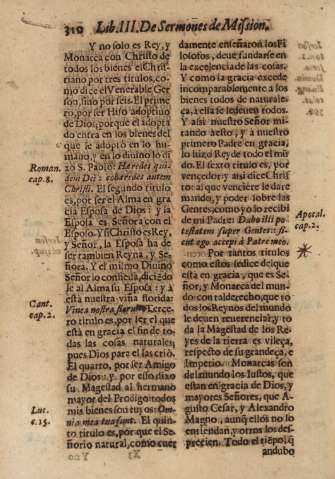 310 Lib. III. De Sermones de Mission.
Y no solo es Rey, y
Monarca con Christo de
todos los bienes el Christiano
por tres titulos, como
dice el Venerable Gerson,
sino por seis. El primero,
por ser Hijo adoptivo
de Dios; porque el adopto
do entra en los bienes del
que se adoptò en lo humano,
y en lo divino lo dixo
S. Pablo: Hæredes quidem
Dei: cohæredes autem
Christi. El segundo titulo
es, por ser el Alma en gracia
Esposa de Dios: y la
Esposa es Señora con el
Esposo. Y si Christo es Rey,
y Señor, la Esposa ha de
ser tambien Reyna, y Señora.
Y el mismo Divino
Señor lo confiessa, diciendo
le al Alma su Esposa: yà
està nuestra viña florida:
Vinea nostra floruit. Tercero
titulo es, por ser el que
està en gracia el fin de todas
las cosas naturales,
pues Dios para el las criò.
El quarto, por ser Amigo
de Dios: y por esso dixo
su Magestad al hermano
mayor del Prodigo: todos
mis bienes son tuyos: Omnia
mea tua sunt. El quinto
titulo es, porque el Señorio
natural, como cuer
Roman.
cap. 8.
Cant.
cap. 2.
Luc.
c. 15.
damente enseñaron los Filosofos,
deve fundarse en
la excelencia de las cosas.
Y como la gracia excede
incomparablemente a los
bienes todos de naturaleza,
à ella se le deven todos.
Y assi nuestro Señor mirando
à esto, y à nuestro
primero Padre en gracia,
lo hizo Rey de todo el mundo.
El sexto titulo es, por
vencedor: y assi dice Christo:
al que venciere le darè
mando, y poder sobre las
Gentes, como yo lo recibì
de mi Padre: Dabo illi potestatem
super Gentes: sicut
ego accepi à Patre meo.
Por tantos titulos
como estos se dice, que
està en gracia, que es Señor,
y Monarca del mundo
con tal derecho, que todos
los Reyes del mundo
le deven reverenciar, y toda
la Magestad de los Reyes
de la tierra es vileza,
respecto de su grandeza, è
Imperio. Monarcas son
del mundo los Justos, que
estan en gracia de Dios, y
mayores Señores, que Augusto
Cesar, y Alexandro
Magno, aunque ellos no lo
entiendan, y otros los desprecien.
Todo el tiepo, q
andubo
Apocal.
cap. 2.